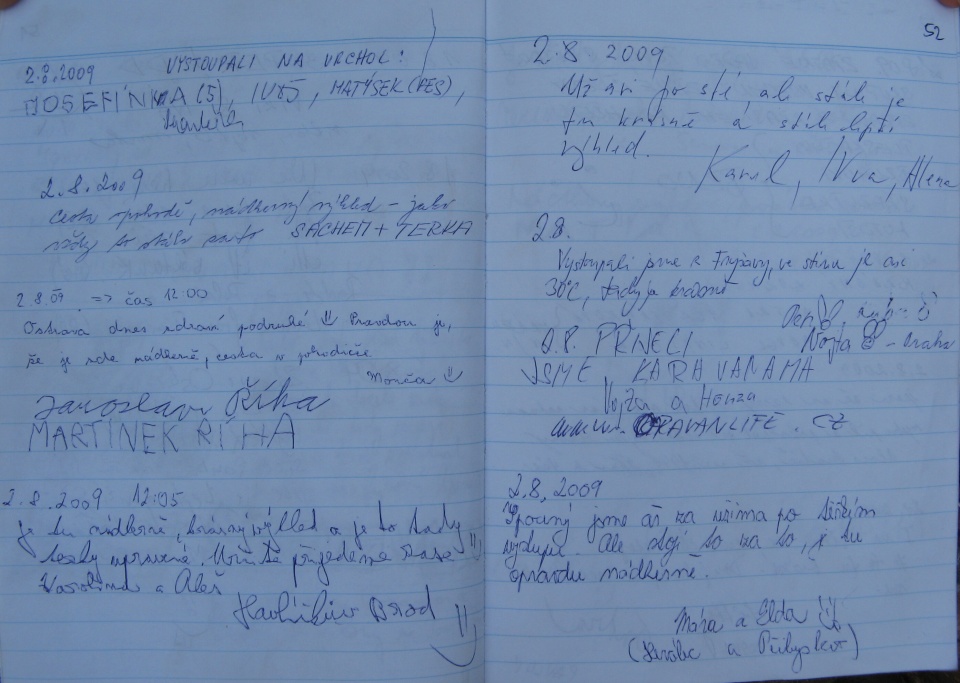 2.8.2009 VYSTOUPALI NA VRCHOL:
JOSEFÍNKA (5), IVOŠ, MATÝSEK (PES),
2.8.2009
Cesta v pohodě, nádherný výhled – jako
vždy to stálo za to SACHEM + TERKA
2.8.09 => čas 12:00
Ostrava dnes zdraví podruhé Pravdou je,
že je zde nádherně, cesta v pohodičce
Monča
Jaroslav Říha
MARTÍNEK ŘÍHA
2.8.2009 12:05
Je tu nádherně, krásný výhled a je to tady
hezky upravené. Určitě přijedeme zase
Karolína a Aleš
Havlíkův Brod
52
2.8 2009
Už asi po sté, ale stále je
tu krásně a stále lepší
výhled.
Karel, Iva, Alena
2.8.
Vystoupali jsme z Fryšavy, ve stínu je asi
30°C, tady je krásně
Vojta - Praha
2.8. PŘIJELI
JSME KARAVANAMA
Vojta a Honza
www. CARAVANLIFE . CZ
2.8, 2009
jsme až za ušima po těžkým
výstupu. Ale stojí to za to, je tu
opravdu nádherně.
Mára a Elda